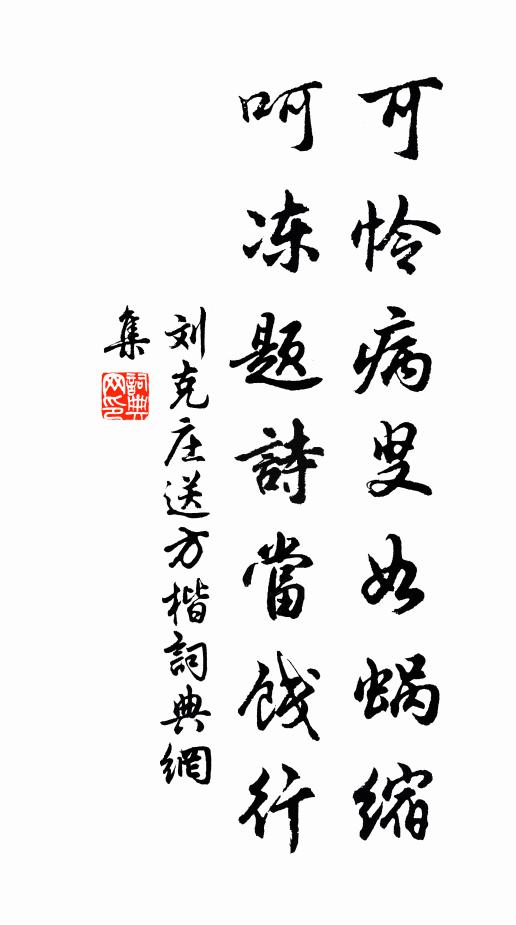 可怜病叟如蜗缩
呵冻题詩當饯行
刘克庄送方楷詞典網
集
詞典网印